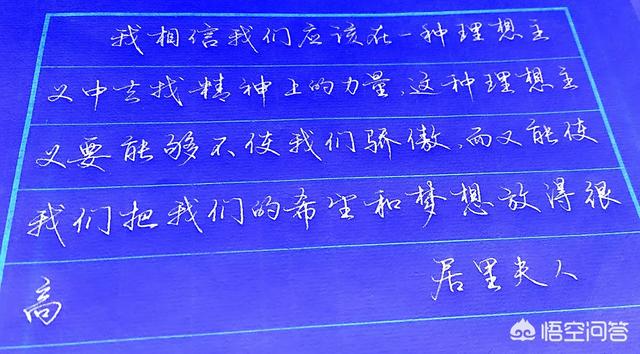 我相信我们应该在一种理想主
义中去找精神上的力量,这种理想主
义要能够不使我们骄傲,而又能使
我们把我们的希望和梦想放得很
高
居里夫人
悟空问答